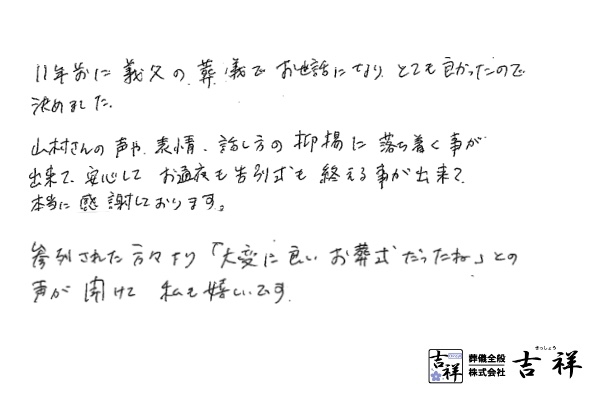 11年前に義父の葬儀でお世話になり、とても良かったので
決めました。
山村さんの声や、表情、話し方の抑揚に落ち着く事が
出来て、安心してお通夜も告別式も終える事が出来て、
本当に感謝しております。
参列された方々より「大変に良いお葬式だったね」との
声が聞けて私も嬉しいです。
吉祥
葬儀全般
株式会社
きっしょう
吉祥